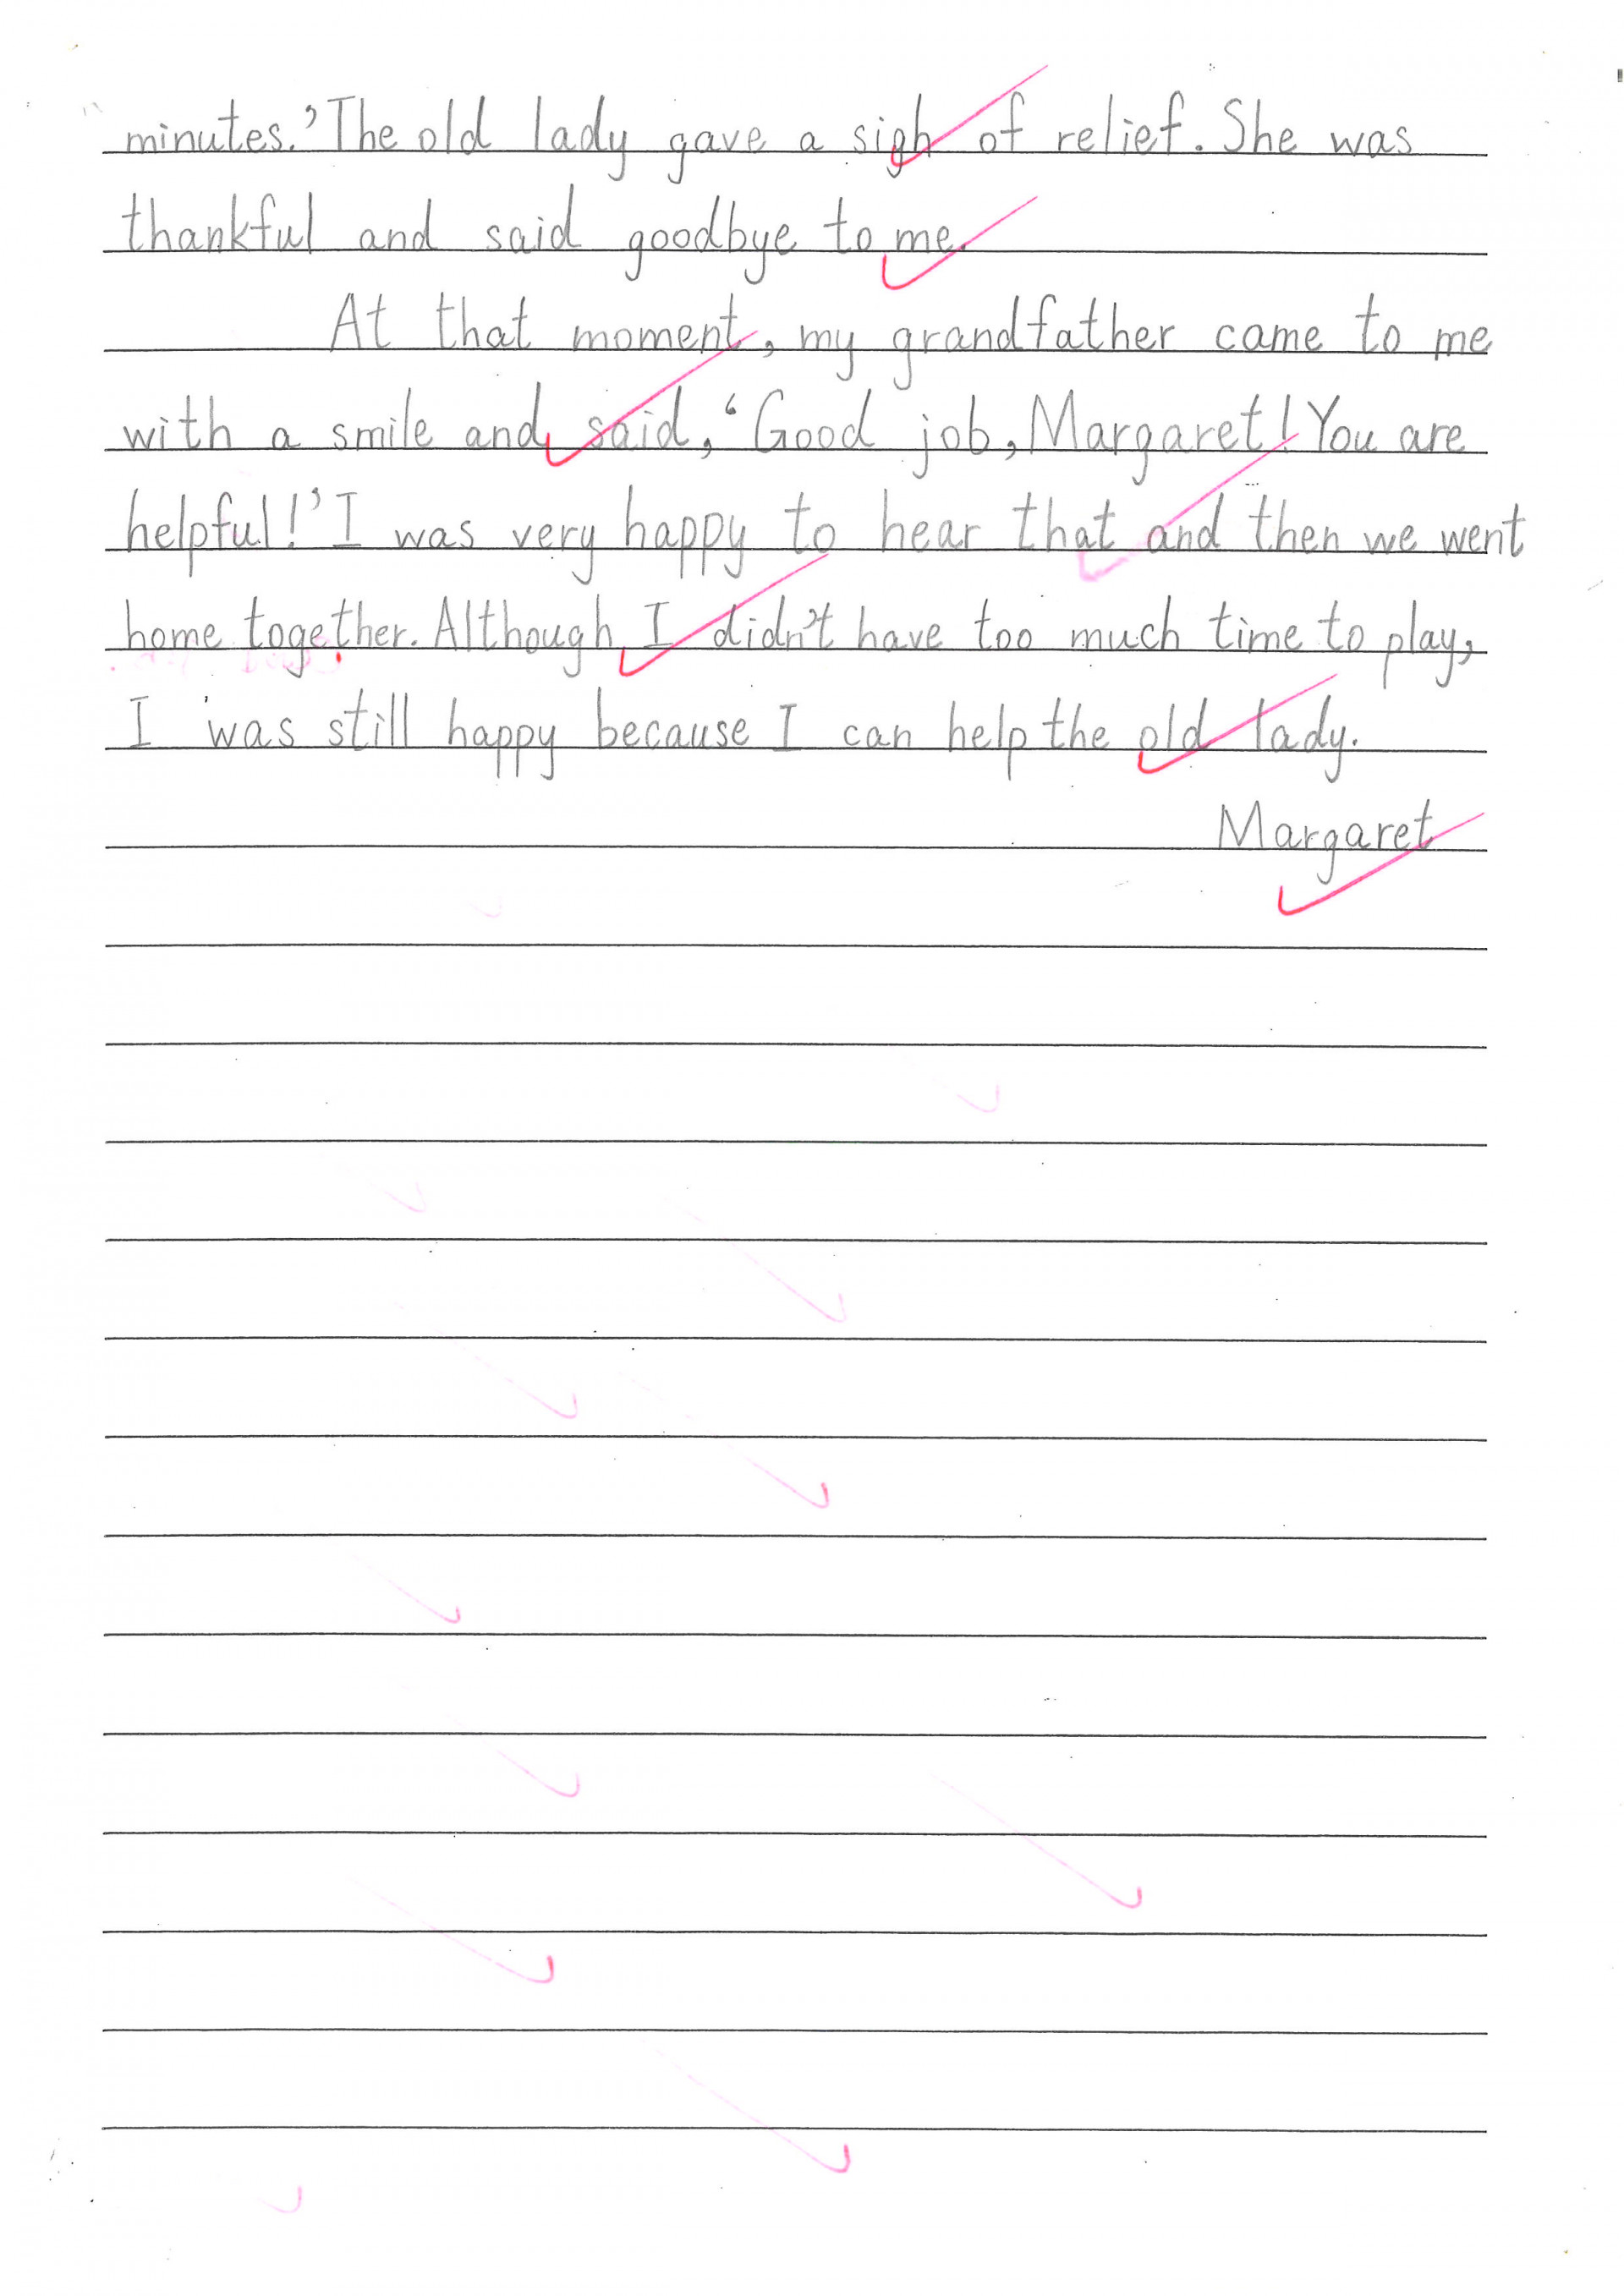 minutes.’ The old lady gave a sigh of relief. She was
thankful and said goodbye to me.
At that moment, my grandfather came to me
with a smile and said, ‘Good job, Margaret! You are
helpful!’ I was very happy to hear that and then we went
home together. Although I didn’t have too much time to play,
I was still happy because I can help the old lady.
Margaret